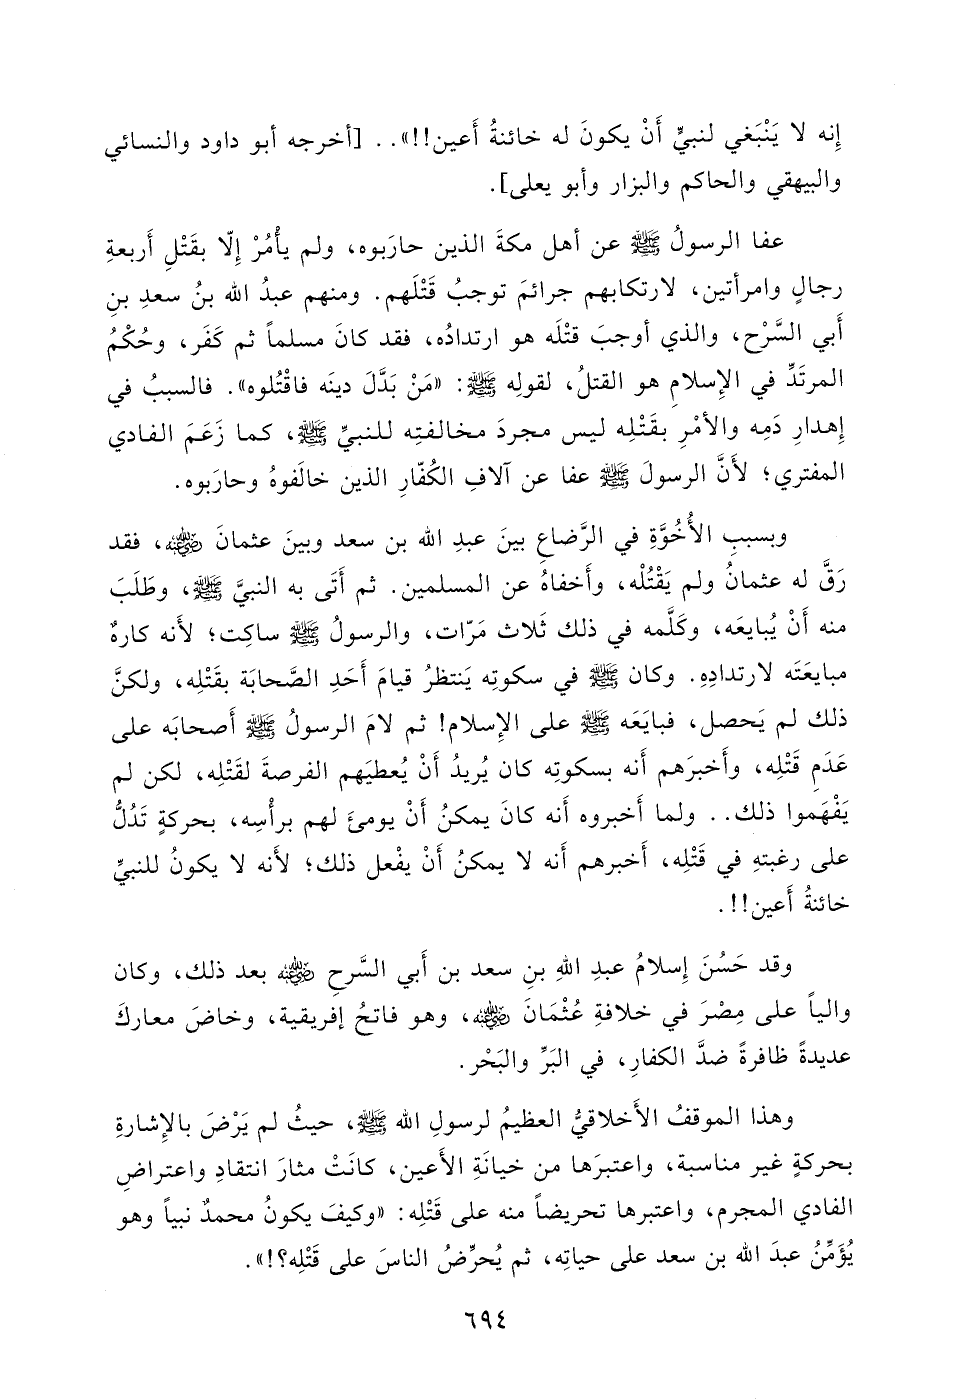 إِنه لا يَنْبَغي لنبيٍّ أَنْ يكونَ له خائنةُ أَعين!!».. [أخرجه أبو داود والنسائي
والبيهقي والحاكم والبزار وأبو يعلى].
عفا الرسولُ ﷺ عن أهل مكةَ الذين حارَبوه، ولم يأْمُرْ إِلّا بقَتْلِ أَربعةِ
رجالٍ وامرأتين، لارتكابهم جرائمَ توجبُ قَتْلَهم. ومنهم عبدُ الله بنُ سعدِ بنِ
أَبي السَّرْح، والذي أوجبَ قتْلَه هو ارتدادُه، فقد كانَ مسلماً ثم كَفَر، وحُكْمُ
المرتَدِّ في الإِسلامِ هو القتلُ، لقولِه ﷺ: «مَنْ بَدَّلَ دينَه فاقْتُلوه». فالسببُ في
إِهدارِ دَمِه والأمْرِ بقَتْلِه ليس مجردَ مخالفتِه للنبيِّ ﷺ، كما زَعَمَ الفادي
المفتري؛ لأَنَّ الرسولَ ﷺ عفا عن آلافِ الكُفّارِ الذين خالَفوهُ وحارَبوه.
وبسببِ الأُخُوَّةِ في الرَّضاعِ بينَ عبدِ الله بن سعد وبينَ عثمانَ رضي الله عنه، فقد
رَقَّ له عثمانُ ولم يَقْتُلْه، وأَخفاهُ عن المسلمين. ثم أَتَى به النبيَّ ﷺ، وطَلَبَ
منه أَنْ يُبايعَه، وكَلَّمه في ذلك ثَلاث مَرّات، والرسولُ ﷺ ساكِت؛ لأَنه كارهٌ
مبايعَتَه لارتدادِهِ. وكان ﷺ في سكوتِه يَنتظرُ قيامَ أَحَدِ الصَّحابَة بقَتْلِه، ولكنَّ
ذلك لم يَحصل، فبايَعَه ﷺ على الإِسلام! ثم لامَ الرسولُ ﷺ أَصحابَه على
عَدَمِ قَتْلِه، وأَخبرَهم أَنه بسكوتِه كان يُريدُ أَنْ يُعطيَهم الفرصةَ لقَتْلِه، لكن لم
يَفْهَموا ذلك.. ولما أخبروه أَنه كانَ يمكنُ أَنْ يومئَ لهم برأْسِه، بحركةٍ تَدُلُّ
على رغبتهِ في قَتْلِه، أَخبرهم أَنه لا يمكنُ أَنْ يفْعل ذلك؛ لأَنه لا يكونُ للنبيِّ
خائنةُ أَعين!!.
وقد حَسُنَ إِسلامُ عبدِ اللهِ بنِ سعد بن أَبي السَّرح رضي الله عنه بعد ذلك، وكان
والياً على مِصْرَ في خلافةِ عُثْمَانَ رضي الله عنه، وهو فاتحُ إفريقية، وخاضَ معاركَ
عديدةً ظافرةً ضدَّ الكفارِ، في البَرِّ والبَحْر.
وهذا الموقفُ الأَخلاقيُّ العظيمُ لرسولِ الله ﷺ، حيثُ لم يَرْضَ بالإِشارةِ
بحركةٍ غير مناسبة، واعتبرَها من خيانَةِ الأَعين، كانَتْ مثارَ انتقادِ واعتراضِ
الفادي المجرم، واعتبرها تحريضاً منه على قَتْلِه: «وكيفَ يكونُ محمدٌ نبياً وهو
يُؤَمِّنُ عبدَ الله بن سعد على حياتِه، ثم يُحرِّضُ الناسَ على قَتْلِه؟!».
٦٩٤